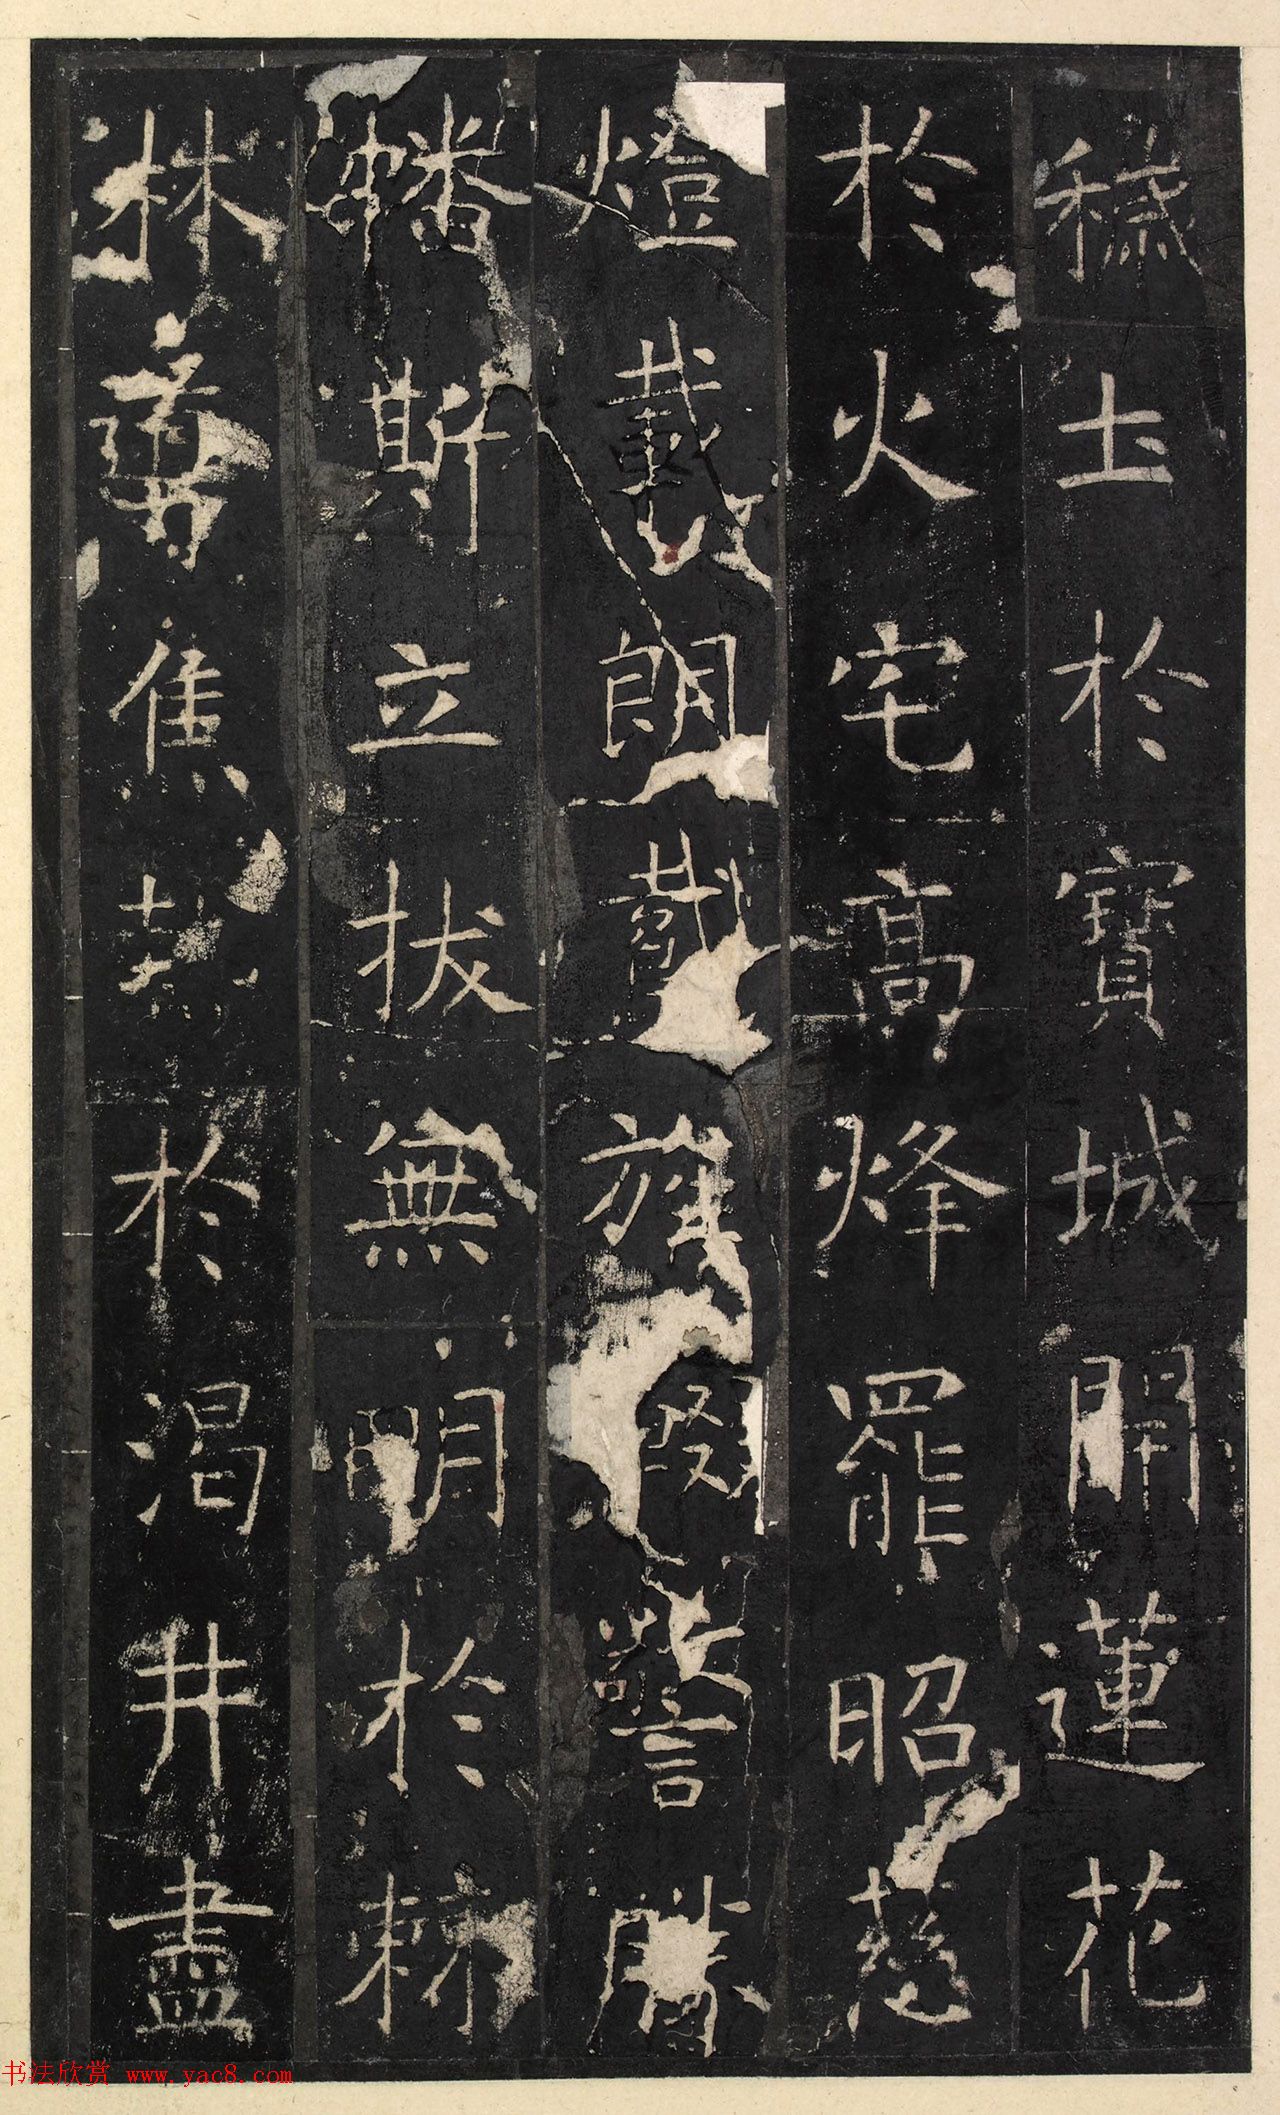 穢土於寶城開蓮花
於火宅高烽罷昭慈
燈載朗輟警勝
幡斯立拔無明於棘
林焦熱於渴井盡
书法欣赏 www.yac8.com